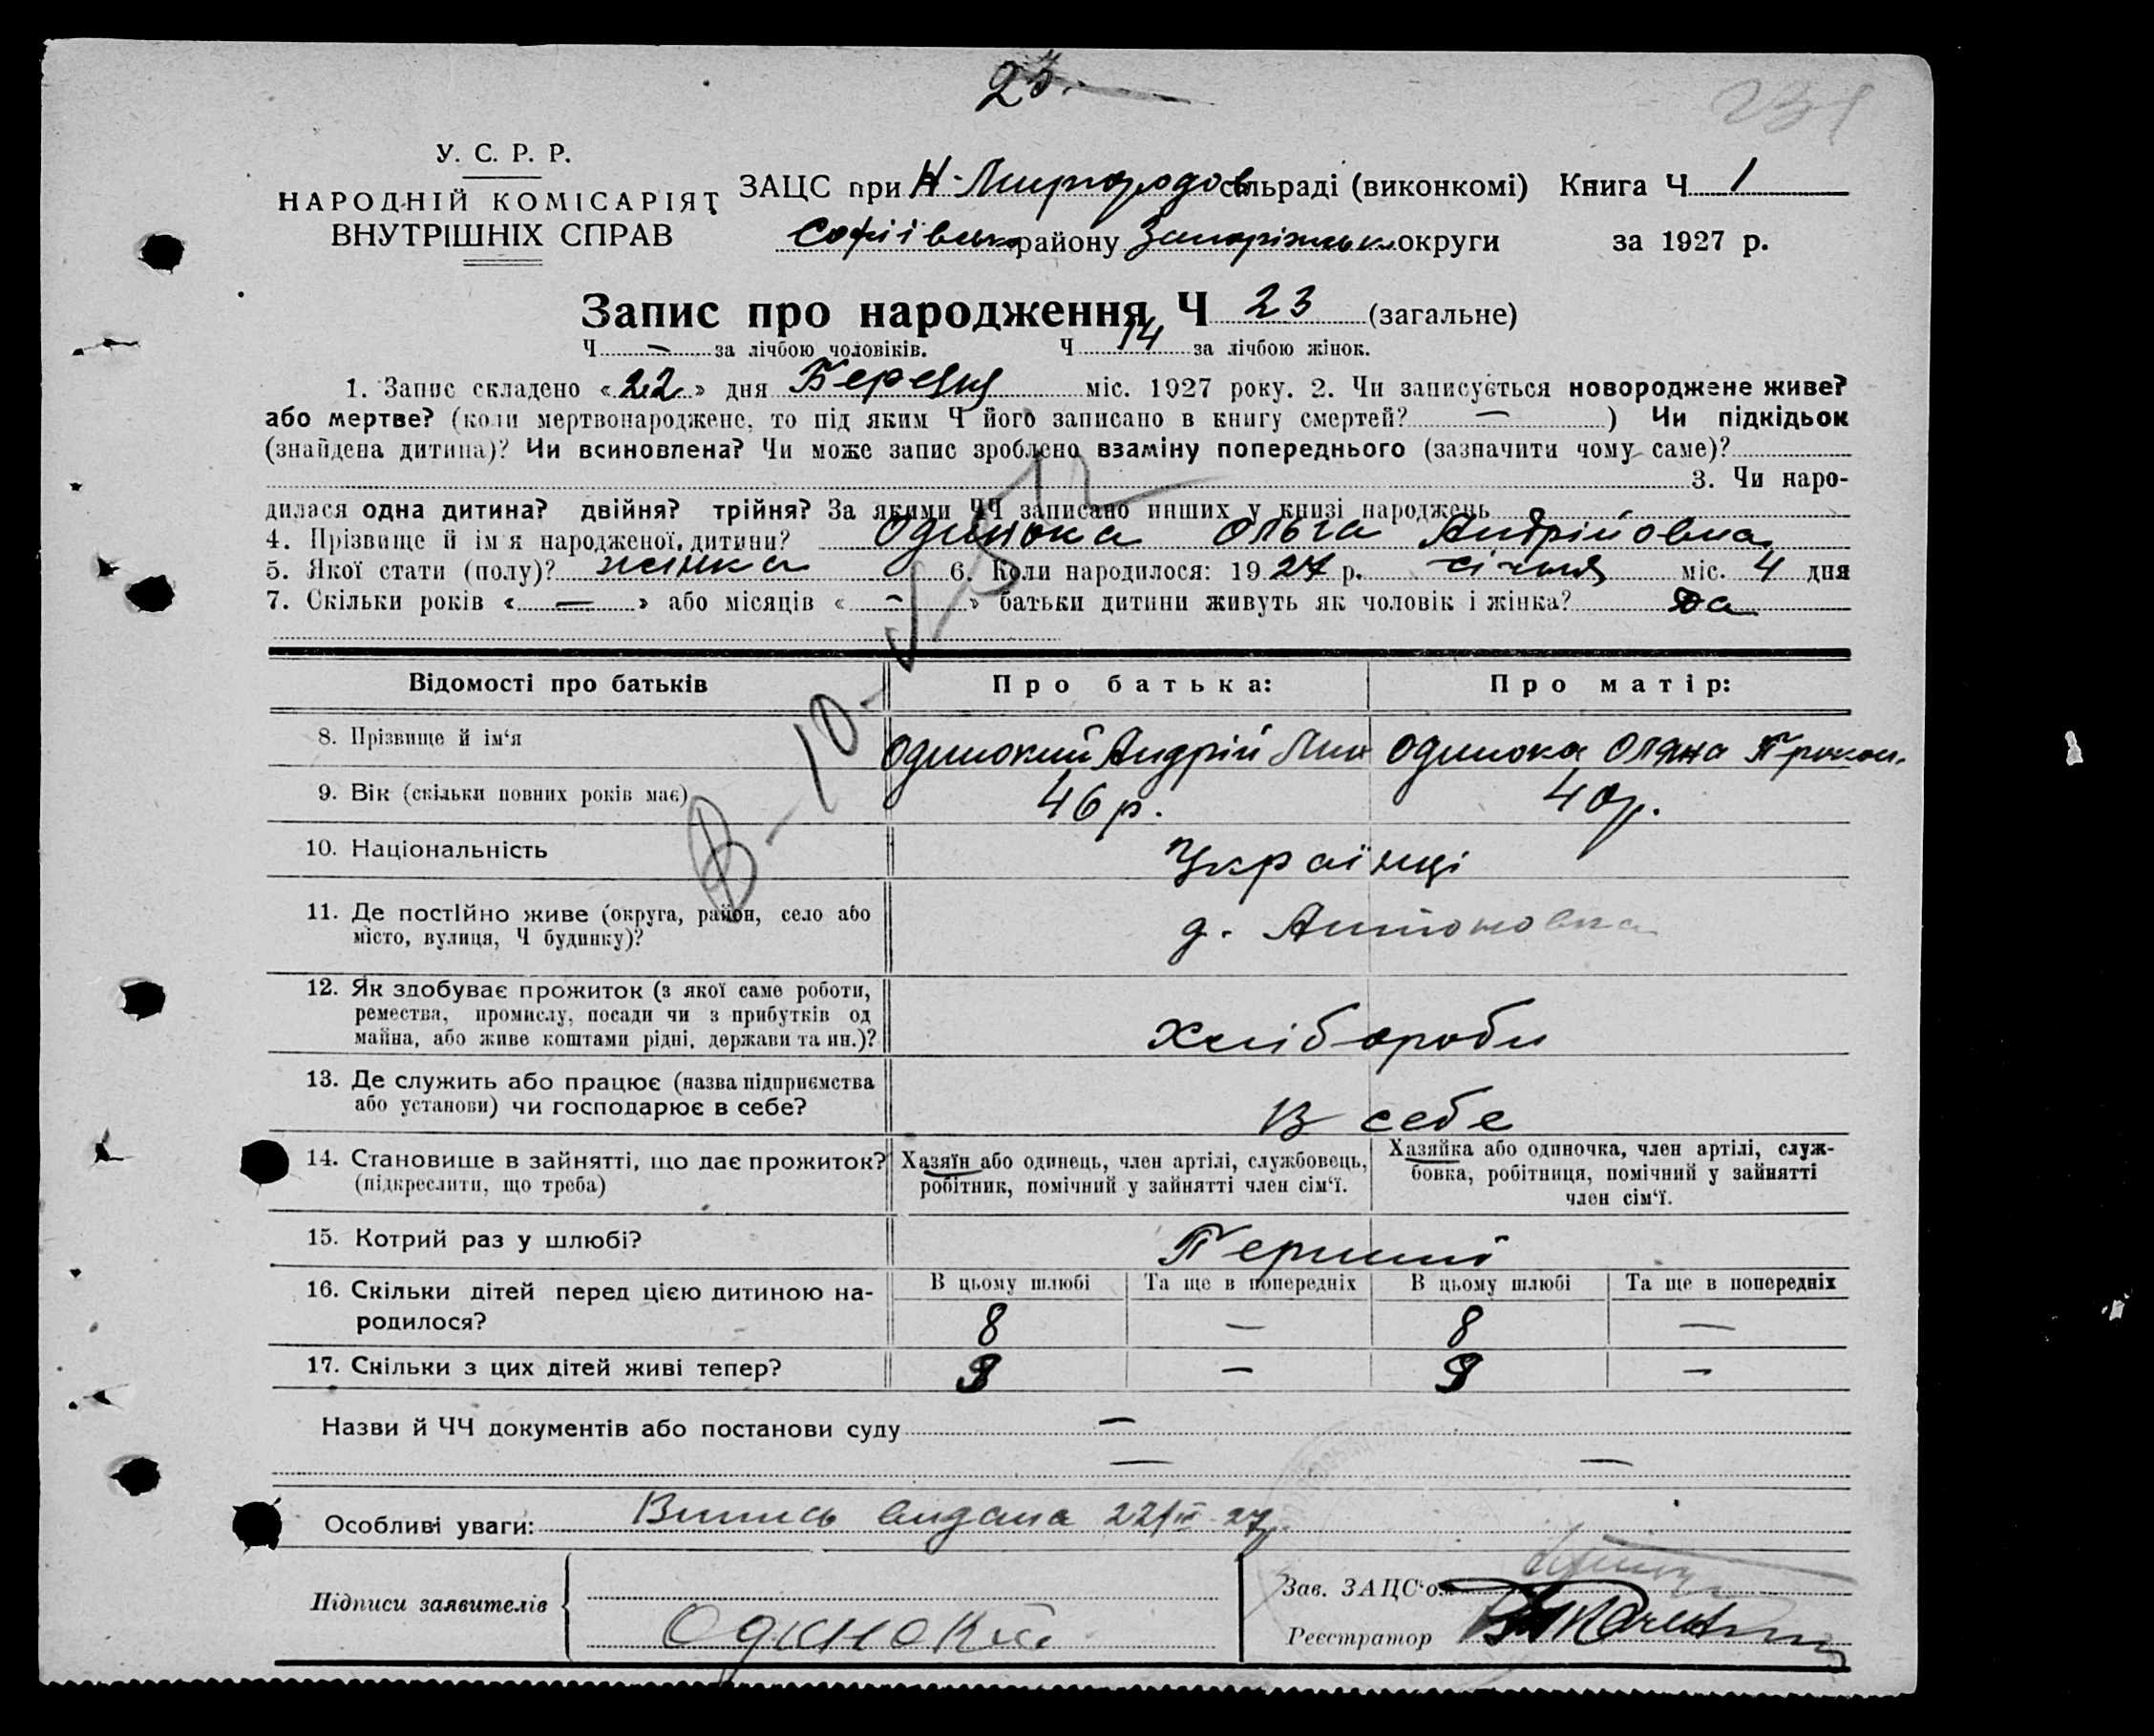 23.
231
У. С. Р. Р.
НАРОДНІЙ КОМІСАРІЯТ
ВНУТРІШНІХ СПРАВ
ЗАЦС при Н-Миргородов сільраді (виконкомі) Книга Ч 1
Софіївсько району Запоріжської округи за 1927 р.
Запис про народження Ч 23 (загальне)
Ч — за лічбою чоловіків. Ч 14 за лічбою жінок.
1. Запис складено «22» дня Березня міс. 1927 року. 2. Чи записується новороджене живе?
або мертве? (коли мертвонароджене, то під яким Ч його записано в книгу смертей? — ) Чи підкідьок
(знайдена дитина)? Чи всиновлена? Чи може запис зроблено взаміну попереднього (зазначити чому саме)?
3. Чи наро-
дилася одна дитина? двійня? трійня? За якими ЧЧ записано инших у книзі народжень
4. Прізвище й ім'я народженої дитини? Одинока Ольга Андрійовна
5. Якої стати (полу)? жінка 6. Коли народилося: 1927 р. січня міс. 4 дня
7. Скільки років « — » або місяців « — » батьки дитини живуть як чоловік і жінка? Да
Відомості про батьків Про батька: Про матір:
8. Прізвище й ім'я Одинокий Андрій Одинока Оляна Прокоп.
9. Вік (скільки повних років має) 46 р. 40 р.
10. Національність Українці
11. Де постійно живе (округа, район, село або
місто, вулиця, Ч будинку)? д. Антоновка
12. Як здобуває прожиток (з якої саме роботи,
ремества, промислу, посади чи з прибутків од
майна, або живе коштами рідні, держави та ин.)? Хлібороби
13. Де служить або працює (назва підприємства
або установи) чи господарює в себе? В себе
14. Становище в зайнятті, що дає прожиток?
(підкреслити, що треба)
Хазяїн або одинець, член артілі, службовець,
робітник, помічний у зайнятті член сім'ї.
Хазяйка або одиночка, член артілі, служ-
бовка, робітниця, помічний у зайнятті
член сім'ї.
15. Котрий раз у шлюбі? Перший
В цьому шлюбі Та ще в попередніх В цьому шлюбі Та ще в попередніх
16. Скільки дітей перед цією дитиною на-
родилося? 8 — 8 —
17. Скільки з цих дітей живі тепер? — —
Назви й ЧЧ документів або постанови суду —
— —
Особливі уваги: Випись видана 22/III 27 р.
Підписи заявителів
Одинокий
Зав. ЗАЦС'ом
Реєстратор